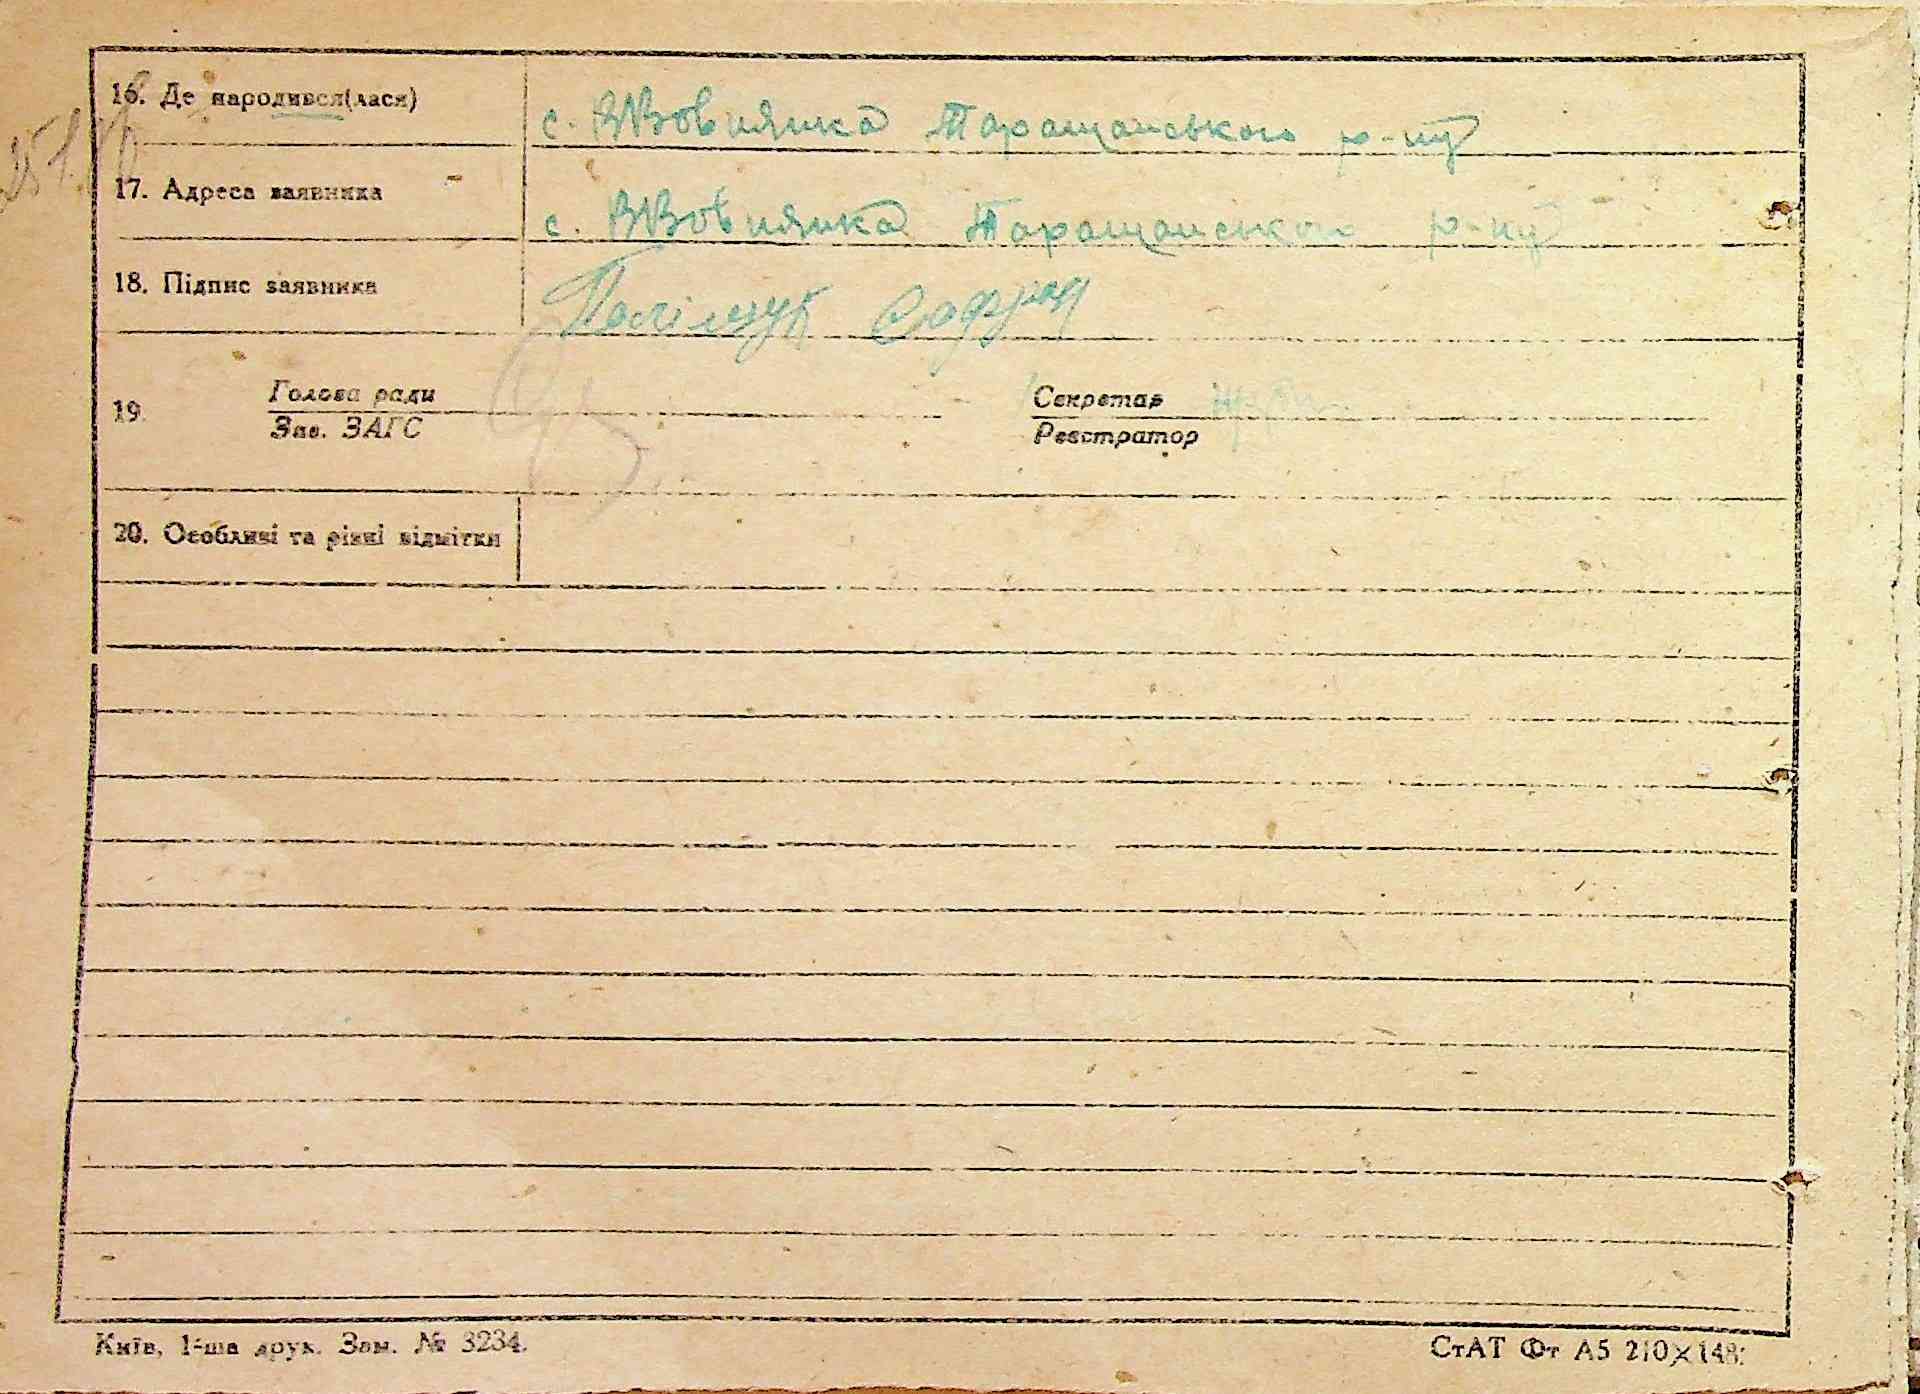 16. Де народився(лася) с. ВВовнянка Таращанського р-ну
17. Адреса заявника с. ВВовнянка Таращанського р-ну
18. Підпис заявника Поліщук Софрон
19. Голова ради Секретар
Зав. ЗАГС Реєстратор
20. Особливі та різні відмітки
Київ, 1-ша друк. Зам. № 3234. СтАТ Фт А5 210×148